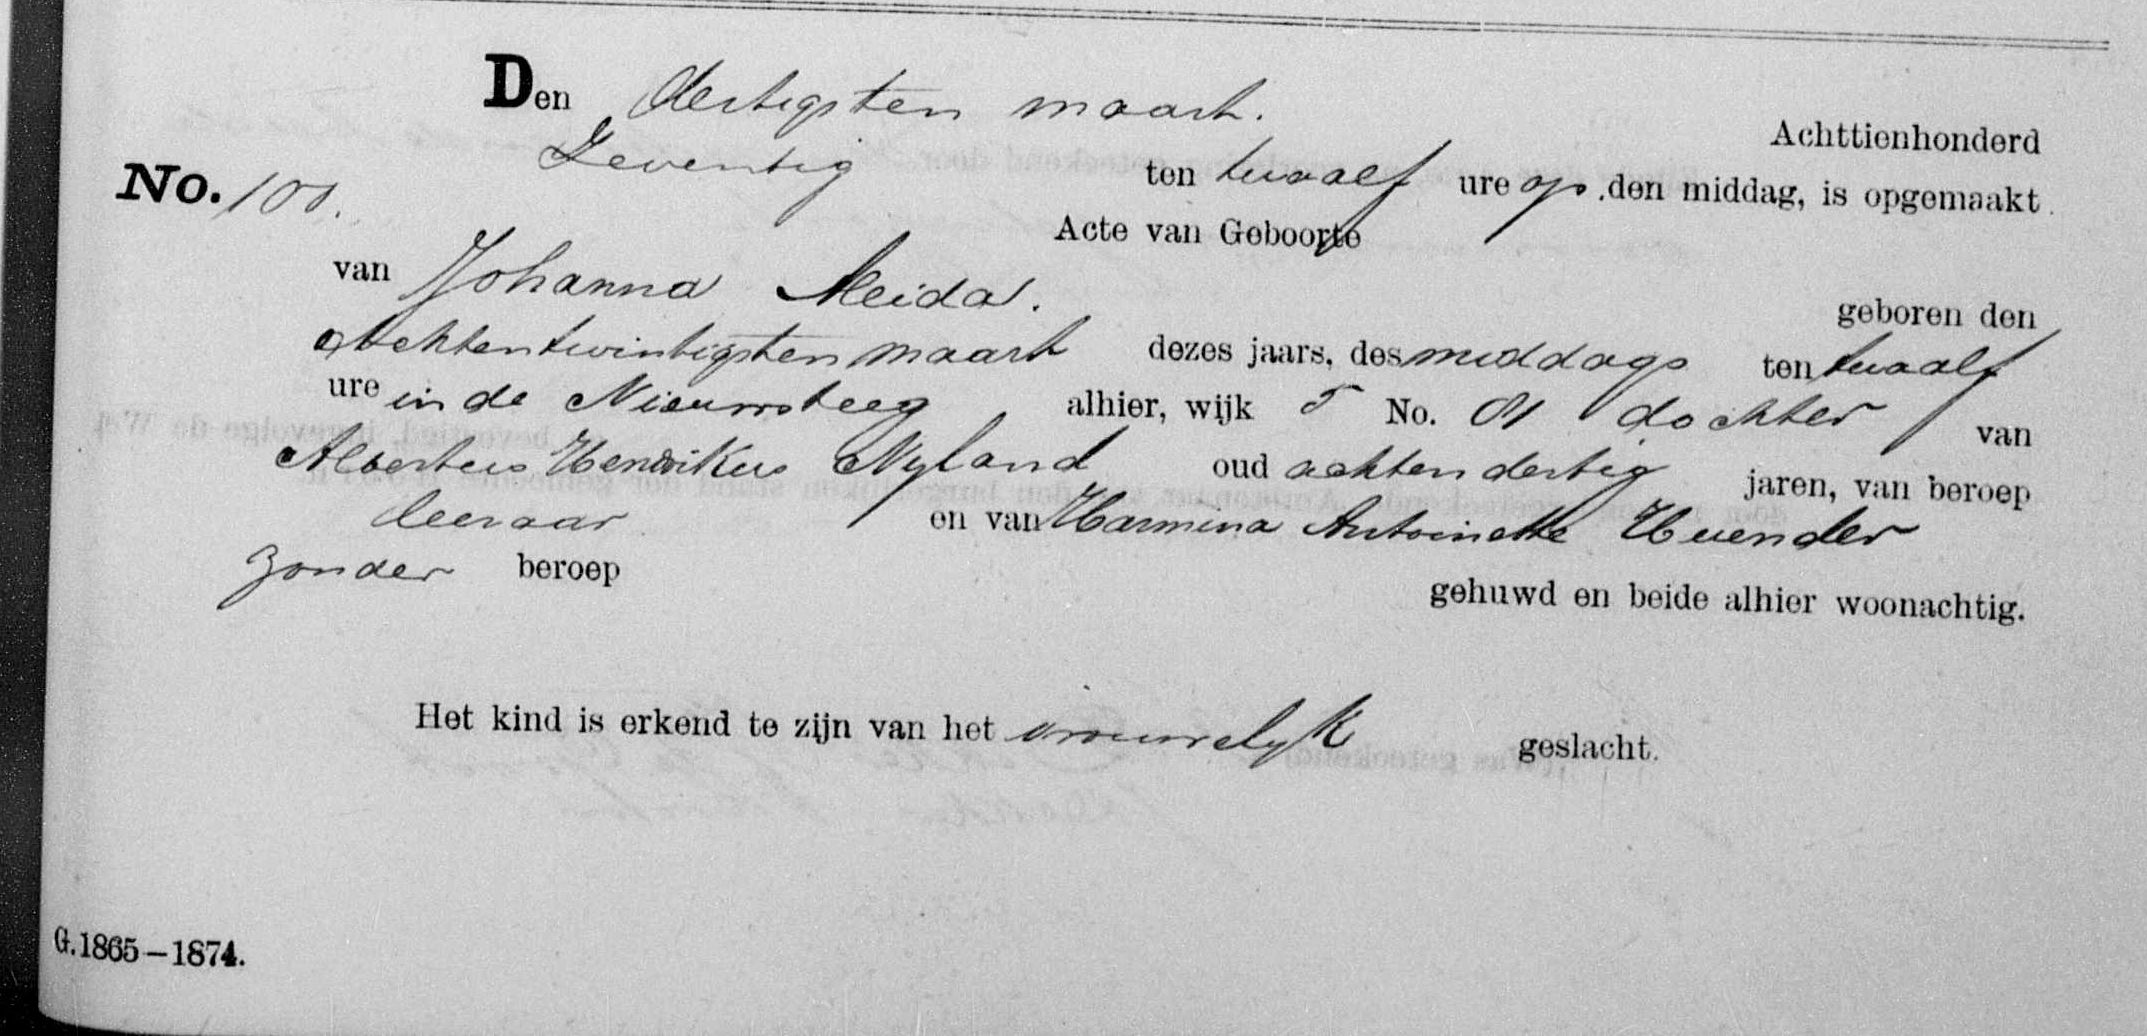 Den dertigsten maart. Achttienhonderd
Zeventig ten twaalf ure op den middag, is opgemaakt
No. 100. Acte van Geboorte
van Johanna Aleida. geboren den
achtentwintigsten maart dezes jaars, des middags ten twaalf
ure in de Nieuwsteeg alhier, wijk 5 No. 81 dochter van
Albertus Hendrikus Nyland oud achtendertig jaren, van beroep
leeraar en van Harmina Antoinette Huender
zonder beroep gehuwd en beide alhier woonachtig.
Het kind is erkend te zijn van het vrouwelyk geslacht.
G.1865–1874.